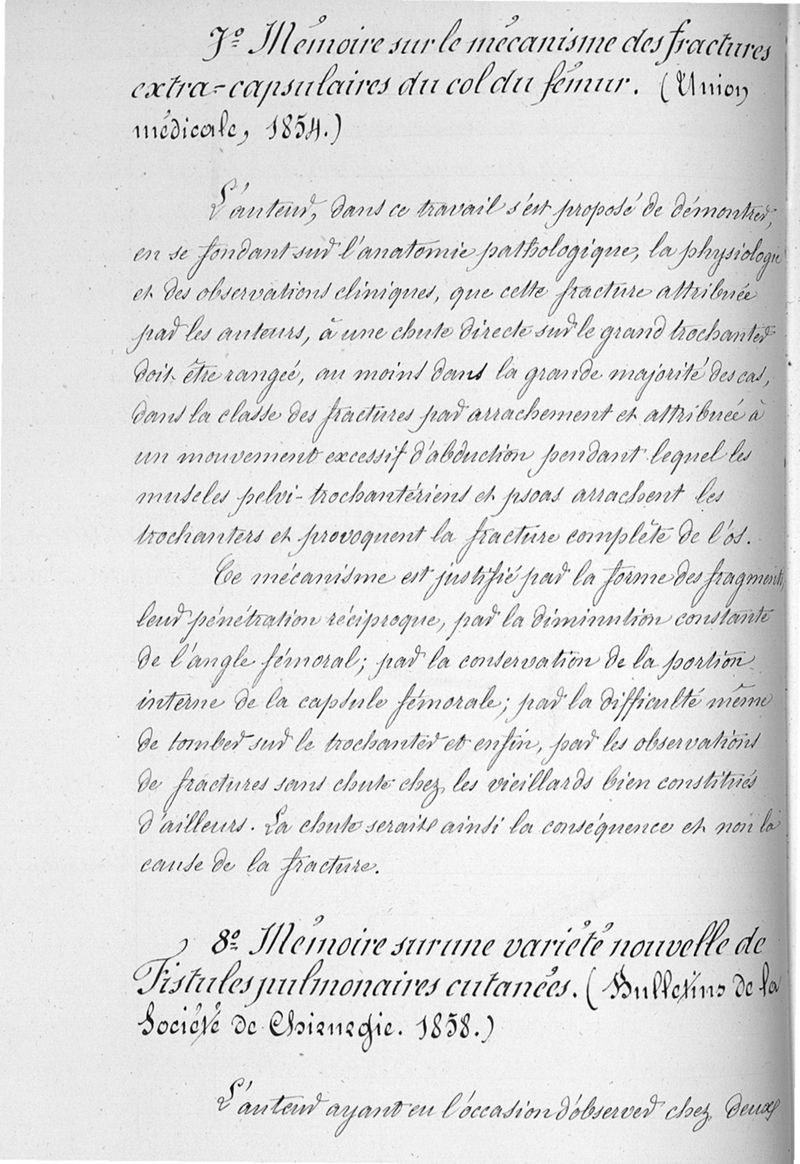 7º Mémoire sur le mécanisme des fractures
extra-capsulaires du col du fémur. (Union
médicale, 1854.)
L'auteur, dans ce travail s'est proposé de démontrer,
en se fondant sur l'anatomie pathologique, la physiologie
et des observations cliniques, que cette fracture attribuée
par les auteurs, à une chute directe sur le grand trochanter
doit être rangée, au moins dans la grande majorité des cas,
dans la classe des fractures par arrachement et attribuée à
un mouvement excessif d'abduction pendant lequel les
muscles pelvi-trochantériens et psoas arrachent les
trochanters et provoquent la fracture complète de l'os.
Ce mécanisme est justifié par la forme des fragments,
leur pénétration réciproque, par la diminution constante
de l'angle fémoral; par la conservation de la portion
interne de la capsule fémorale; par la difficulté même
de tomber sur le trochanter et enfin, par les observations
de fractures sans chute chez les vieillards bien constitués
d'ailleurs. La chute serait ainsi la conséquence et non la
cause de la fracture.
8º Mémoire sur une variété nouvelle de
Fistules pulmonaires cutanées. (Bulletins de la
Société de Chirurgie. 1858.)
L'auteur ayant eu l'occasion d'observer chez deux